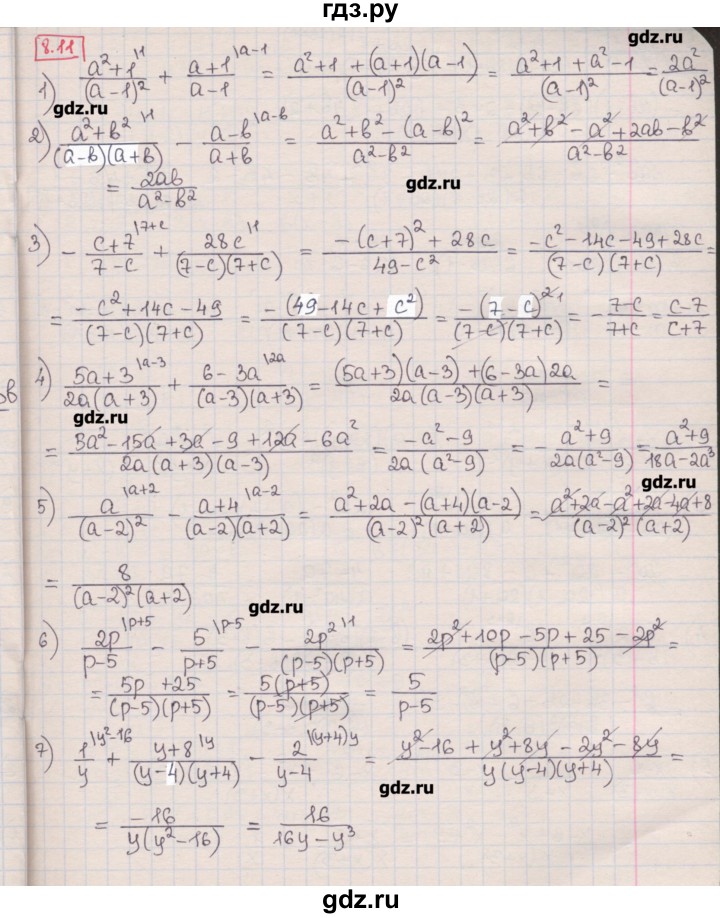 гдз.ру
8.11
1) \frac{a^2+1^{|1}}{(a-1)^2} + \frac{a+1^{|a-1}}{a-1} = \frac{a^2+1+(a+1)(a-1)}{(a-1)^2} = \frac{a^2+1+a^2-1}{(a-1)^2} = \frac{2a^2}{(a-1)^2}
2) \frac{a^2+b^{2|1}}{(a-b)(a+b)} - \frac{a-b^{|a-b}}{a+b} = \frac{a^2+b^2-(a-b)^2}{a^2-b^2} = \frac{a^2+b^2-a^2+2ab-b^2}{a^2-b^2}
= \frac{2ab}{a^2-b^2}
3) -\frac{c+7^{|7+c}}{7-c} + \frac{28c^{|1}}{(7-c)(7+c)} = \frac{-(c+7)^2+28c}{49-c^2} = \frac{-c^2-14c-49+28c}{(7-c)(7+c)} =
= \frac{-c^2+14c-49}{(7-c)(7+c)} = \frac{-(49-14c+c^2)}{(7-c)(7+c)} = \frac{-(7-c)^{2 1}}{(7-c)(7+c)} = -\frac{7-c}{7+c} = \frac{c-7}{c+7}
4) \frac{5a+3^{|a-3}}{2a(a+3)} + \frac{6-3a^{|2a}}{(a-3)(a+3)} = \frac{(5a+3)(a-3)+(6-3a)2a}{2a(a-3)(a+3)} =
= \frac{3a^2-15a+3a-9+12a-6a^2}{2a(a+3)(a-3)} = \frac{-a^2-9}{2a(a^2-9)} = -\frac{a^2+9}{2a(a^2-9)} = \frac{a^2+9}{18a-2a^3}
5) \frac{a^{|a+2}}{(a-2)^2} - \frac{a+4^{|a-2}}{(a-2)(a+2)} = \frac{a^2+2a-(a+4)(a-2)}{(a-2)^2(a+2)} = \frac{a^2+2a-a^2+2a-4a+8}{(a-2)^2(a+2)}
= \frac{8}{(a-2)^2(a+2)}
6) \frac{2p^{|p+5}}{p-5} - \frac{5^{|p-5}}{p+5} - \frac{2p^{2|1}}{(p-5)(p+5)} = \frac{2p^2+10p-5p+25-2p^2}{(p-5)(p+5)} =
= \frac{5p+25}{(p-5)(p+5)} = \frac{5(p+5)}{(p-5)(p+5)} = \frac{5}{p-5}
7) \frac{1^{|y^2-16}}{y} + \frac{y+8^{|y}}{(y-4)(y+4)} - \frac{2^{|(y+4)y}}{y-4} = \frac{y^2-16+y^2+8y-2y^2-8y}{y(y-4)(y+4)} =
= \frac{-16}{y(y^2-16)} = \frac{16}{16y-y^3}
gdz.ru
gdz.ru
gdz.ru
gdz.ru
gdz.ru
gdz.ru
gdz.ru
gdz.ru
gdz.ru